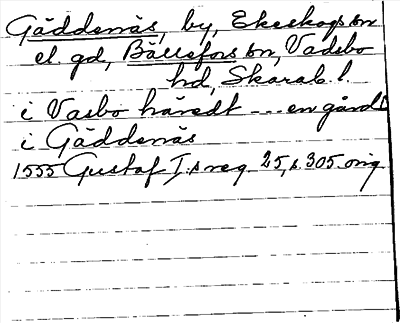 Gäddenäs, by, Ekeskogs sn
el. gd, Bällefors sn, Vadsbo
hd, Skarab. l.
i Vasbo häredt --- en gårdt
i Gäddenäs
1555 Gustaf I:s reg. 25, s. 305. orig